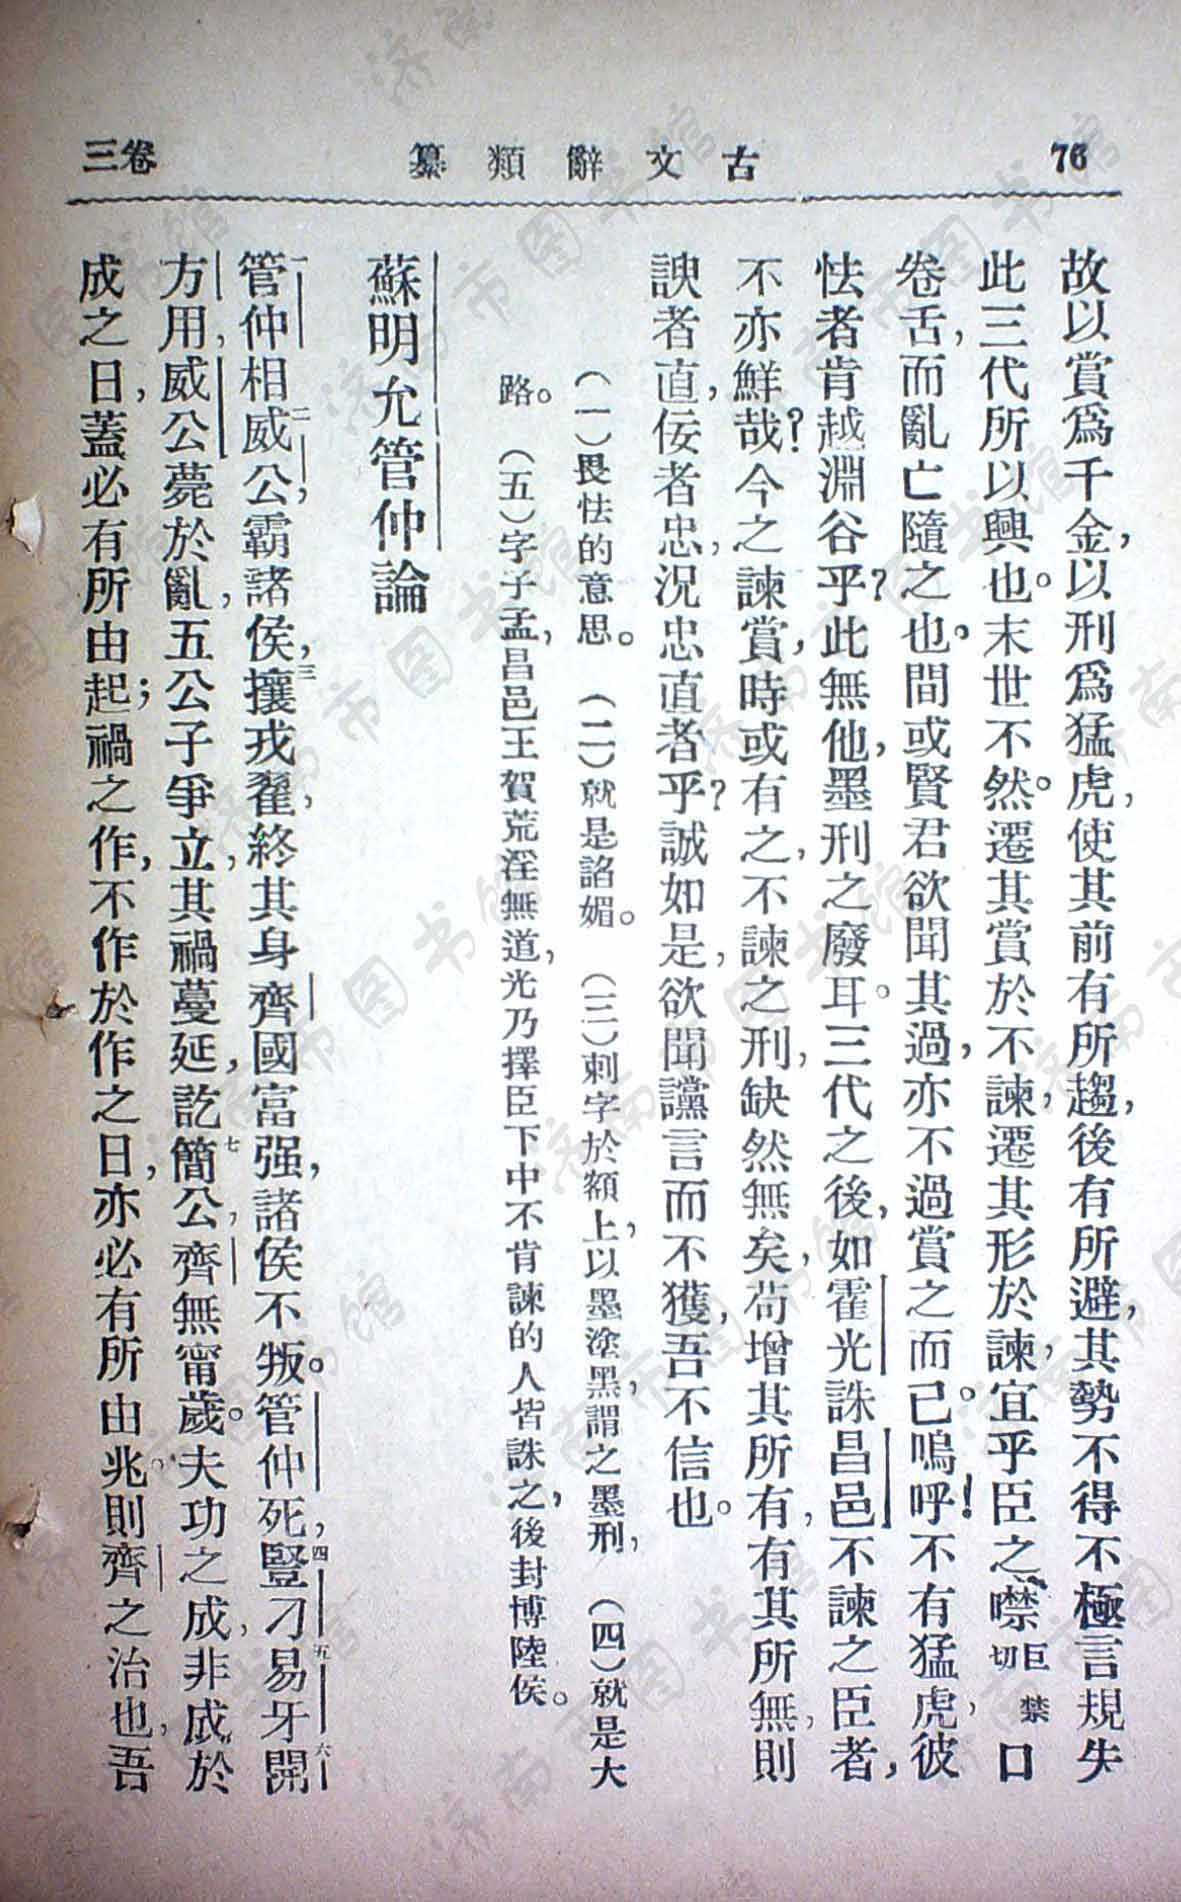 76
古文辭類纂
卷三
故以賞爲千金，以刑爲猛虎，使其前有所趨，後有所避，其勢不得不極言規失
此三代所以興也。末世不然。遷其賞於不諫，遷其形於諫，宜乎臣之噤巨禁切口
卷舌，而亂亡隨之也。間或賢君欲聞其過，亦不過賞之而已。嗚呼！不有猛虎，彼
怯者肯越淵谷乎？此無他，墨刑之廢耳。三代之後，如霍光誅昌邑不諫之臣者，
不亦鮮哉？今之諫賞，時或有之，不諫之刑，缺然無矣，苟增其所有，有其所無，則
諛者直，佞者忠，況忠直者乎？誠如是，欲聞讜言而不獲，吾不信也。
（一）畏怯的意思。（二）就是諂媚。（三）刺字於額上，以墨塗黑，謂之墨刑，（四）就是大
路。（五）字子孟，昌邑王賀荒淫無道，光乃擇臣下中不肯諫的人皆誅之，後封博陸侯。
蘇明允管仲論
一管仲相二威公，霸諸侯，三攘戎翟，終其身齊國富强，諸侯不叛。管仲死，四豎刁五易牙六開
方用，威公薨於亂，五公子爭立，其禍蔓延，訖七簡公，齊無甯歲。夫功之成，非成於
成之日，蓋必有所由起；禍之作，不作於作之日，亦必有所由兆。則齊之治也，吾
濟南市图书馆